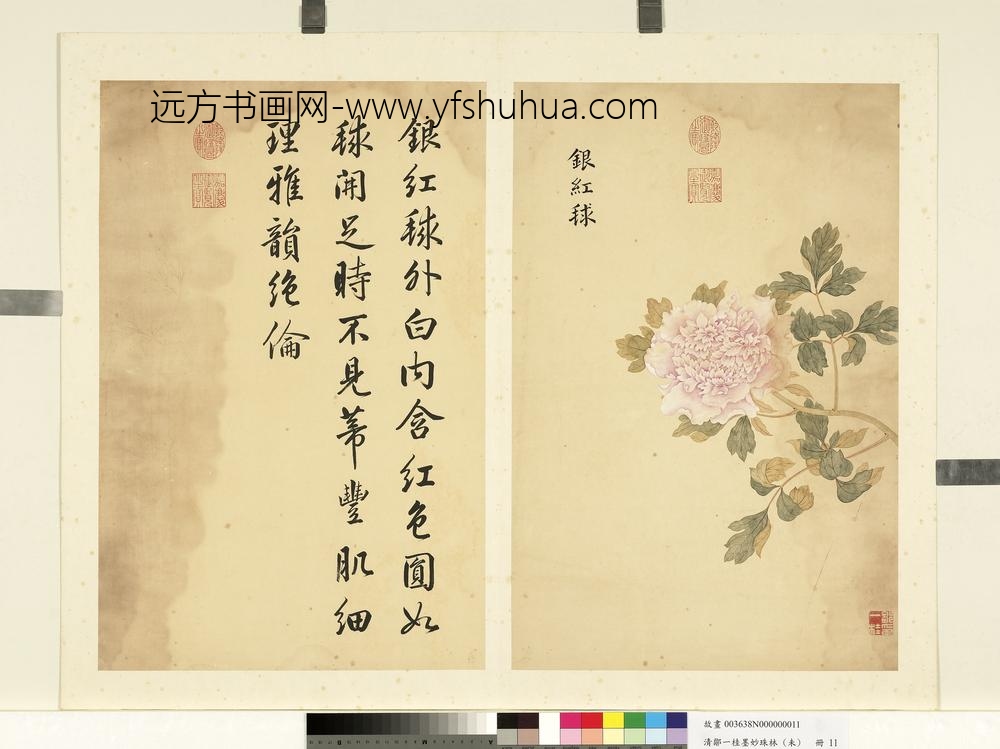 远方书画网-www.yfshuhua.com
銀紅毬
銀紅毬外白内含紅色圓如
毬開足時不見蒂豐肌細
理雅韻絶倫
故畫 003638N000000011
清鄒一桂墨妙珠林（未） 冊 11